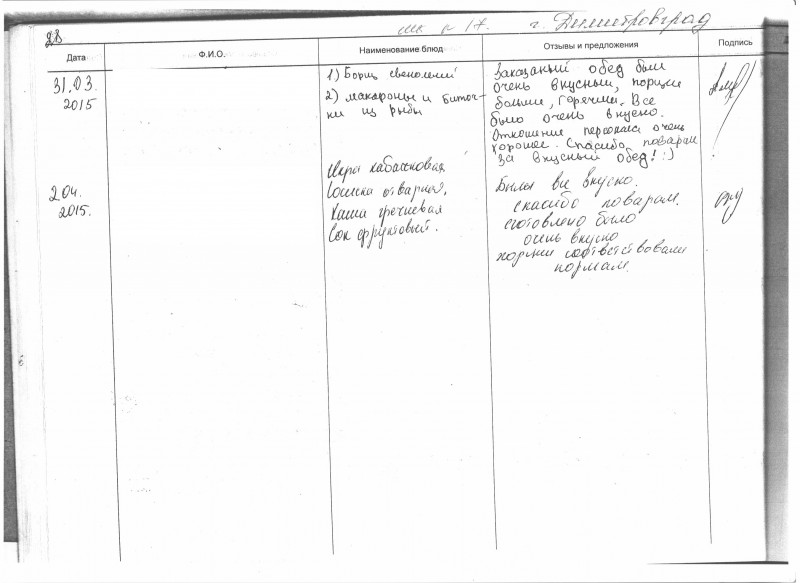 шк. № 17. г. Димитровград
28
Дата Ф.И.О. Наименование блюд Отзывы и предложения Подпись
31.03.
2015
1) Борщ свекольный
2) макароны и биточ-
ки из рыбы
Заказаный обед был
очень вкусный, порции
больши, горечии. Все
было очень вкусно.
Отношение персонала очень
хорошее. Спасибо поварам
за вкусный обед! :)
2.04.
2015.
Икра кабачковая,
сосиска отварная,
Каша гречневая
Сок фруктовый.
Было все вкусно.
спасибо поварам.
сготовлено было
очень вкусно
порции соответствовали
нормам.